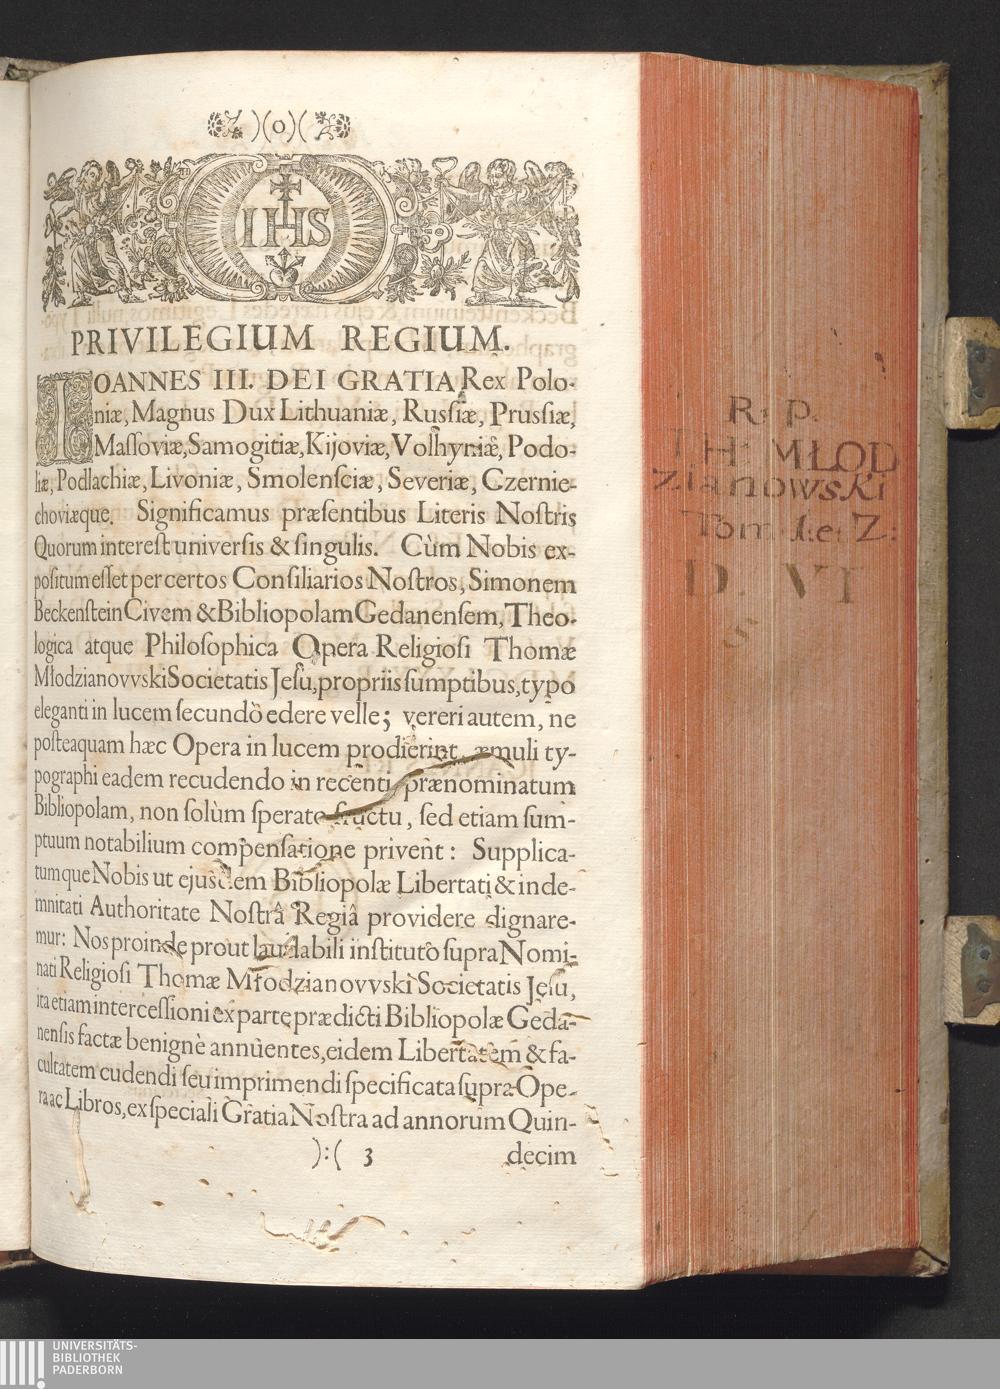 )(o)(
IHS
PRIVILEGIUM REGIUM.
IOANNES III. DEI GRATIA Rex Polo-
niæ, Magnus Dux Lithuaniæ, Rusſiæ, Prusſiæ,
Maſſoviæ, Samogitiæ, Kijoviæ, Volhyniæ, Podo-
liæ, Podlachiæ, Livoniæ, Smolenſciæ, Severiæ, Czernie-
choviæque. Significamus præſentibus Literis Noſtris
Quorum intereſt univerſis & ſingulis. Cùm Nobis ex-
poſitum eſſet per certos Conſiliarios Noſtros, Simonem
Beckenſtein Civem & Bibliopolam Gedanenſem, Theo-
logica atque Philoſophica Opera Religioſi Thomæ
Młodzianovvski Societatis Jeſu, propriis ſumptibus, typo
eleganti in lucem ſecundò edere velle; vereri autem, ne
poſteaquam hæc Opera in lucem prodierint, æmuli ty-
pographi eadem recudendo in recenti, prænominatum
Bibliopolam, non ſolùm ſperato fructu, ſed etiam ſum-
ptuum notabilium compenſatione privent: Supplica-
tumque Nobis ut ejusdem Bibliopolæ Libertati & inde-
mnitati Authoritate Noſtrâ Regiâ providere dignare-
mur: Nos proinde prout laudabili inſtituto ſupra Nomi-
nati Religioſi Thomæ Młodzianovvski Societatis Jeſu,
ita etiam interceſſioni ex parte prædicti Bibliopolæ Geda-
nenſis factæ benignè annuentes, eidem Libertatem & fa-
cultatem cudendi ſeu imprimendi ſpecificata ſupra Ope-
ra ac Libros, ex ſpeciali Gratia Noſtra ad annorum Quin-
):( 3 decim
R. P.
TH: MŁOD
zianowski
Tom 1. et Z:
D. VI
UNIVERSITÄTS-
BIBLIOTHEK
PADERBORN